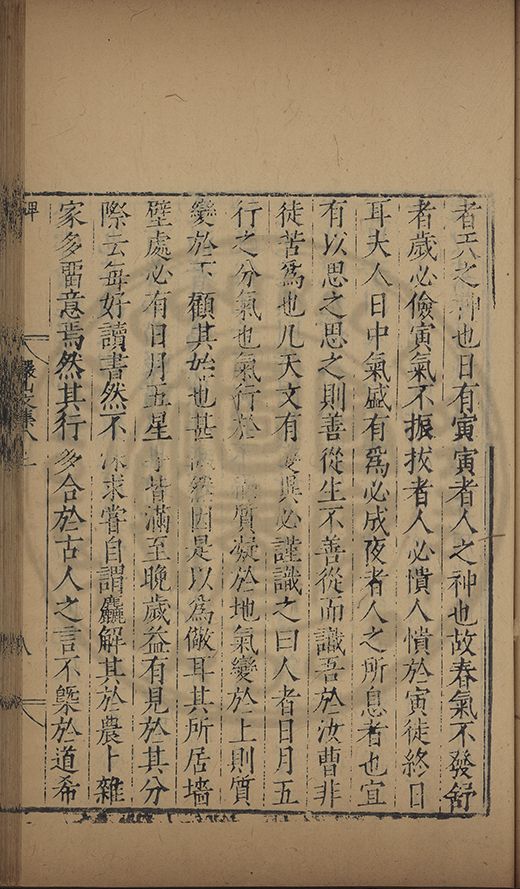 者天之神也日有寅寅者人之神也故春氣不發舒
者歲必儉寅氣不振拔者人必憒人憒於寅徒終日
耳夫人日中氣盛有爲必成夜者人之所息者也宜
有以思之思之則善從生不善從而識吾於汝曹非
徒苦爲也凡天文有變異必謹識之曰人者日月五
行之分氣也氣行於質凝於地氣變於上則質
變於下顧其始也甚微繇因是以爲儆耳其所居墻
壁處必有日月五星皆滿至晚歲益有見於其分
際云每好讀書然不深求嘗自謂麤解其於農卜雜
家多留意焉然其行多合於古人之言不槩於道希